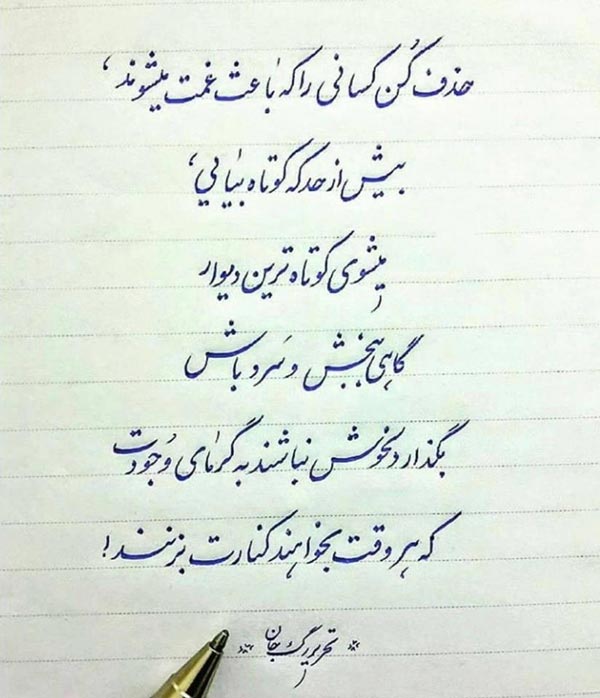 حذف کُن کسانی را که باعث غمت میشوند،
بیش از حد که کوتاه بیایی،
میشوی کوتاه ترین دیوار
گاهی ببخش و سَرد باش
بگذار دلخوش نباشند به گرمای وجودت
که هر وقت بخواهند کنارت بزنند!
تحریر